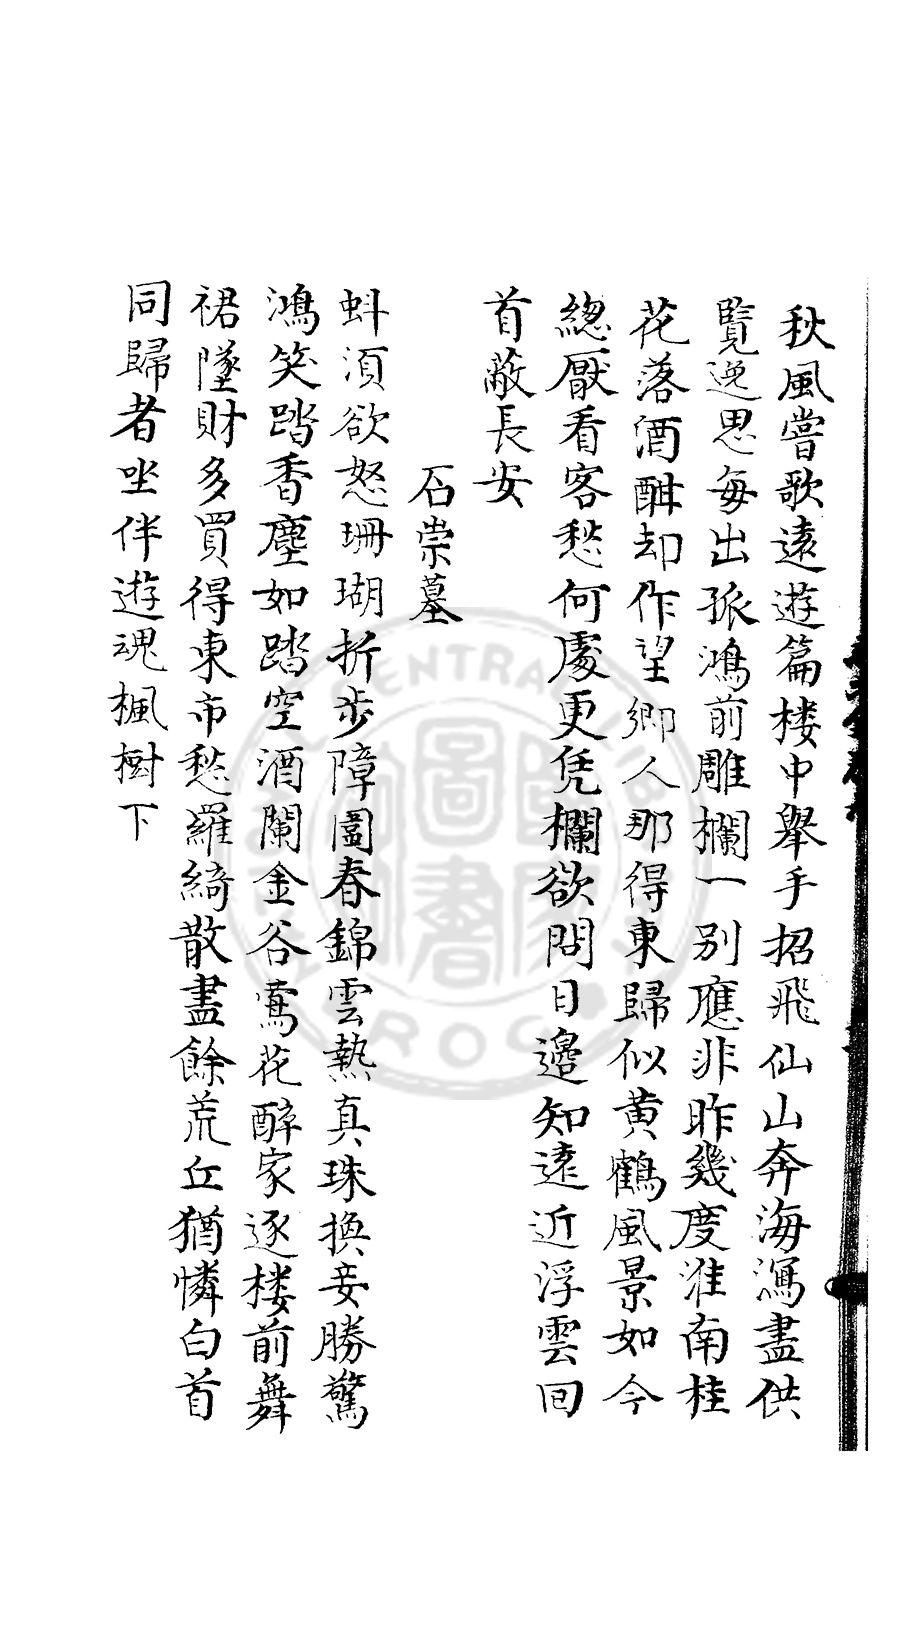 秋風嘗歌遠遊篇楼中舉手招飛仙山奔海瀉盡供
覽逸思每出孤鴻前雕欄一別應非昨幾度淮南桂
花落酒酣却作望鄉人那得東歸似黄鶴風景如今
緫厭看客愁何處更凭欄欲問日邊知遠近浮雲囘
首蔽長安
石崇墓
蚪湏欲怒珊瑚折步障圍春錦雲熱真珠換妾勝驚
鴻笑踏香塵如踏空酒闌金谷鶯花醉家逐楼前舞
裙墜財多買得東市愁羅綺散盡餘荒丘猶憐白首
同歸者坐伴遊魂楓樹下
CENTRAL LIBRARY
R.O.C.
國家圖書館